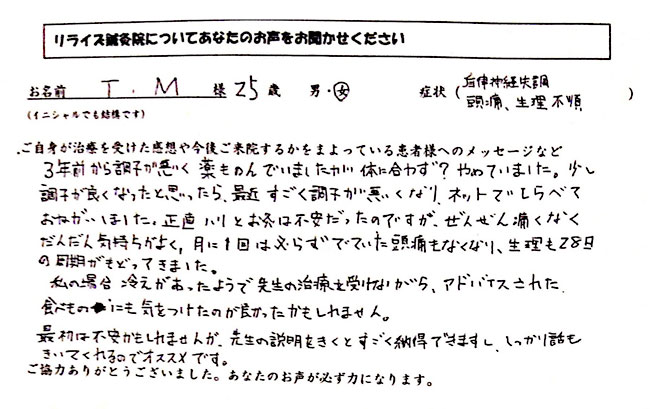 リライズ鍼灸院についてあなたのお声をお聞かせください
お名前 T.M 様 25歳 男・女 症状(自律神経失調
頭痛、生理不順)
(イニシャルでも結構です)
ご自身が治療を受けた感想や今後ご来院するかをまよっている患者様へのメッセージなど
3年前から調子が悪く薬ものんでいましたが体に合わず?やめていました。少し
調子が良くなったと思ったら、最近すごく調子が悪くなり、ネットでしらべて
おねがいしました。正直ハリとお灸は不安だったのですが、ぜんぜん痛くなく
だんだん気持ちがよく、月に1回は必らずでていた頭痛もなくなり、生理も28日
の周期がもどってきました。
私の場合冷えがあったようで先生の治療を受けながら、アドバイスされた
食べものにも気をつけたのが良かったかもしれません。
最初は不安かもしれませんが、先生の説明をきくとすごく納得できますし、しっかり話も
きいてくれるのでオススメです。
ご協力ありがとうございました。あなたのお声が必ず力になります。